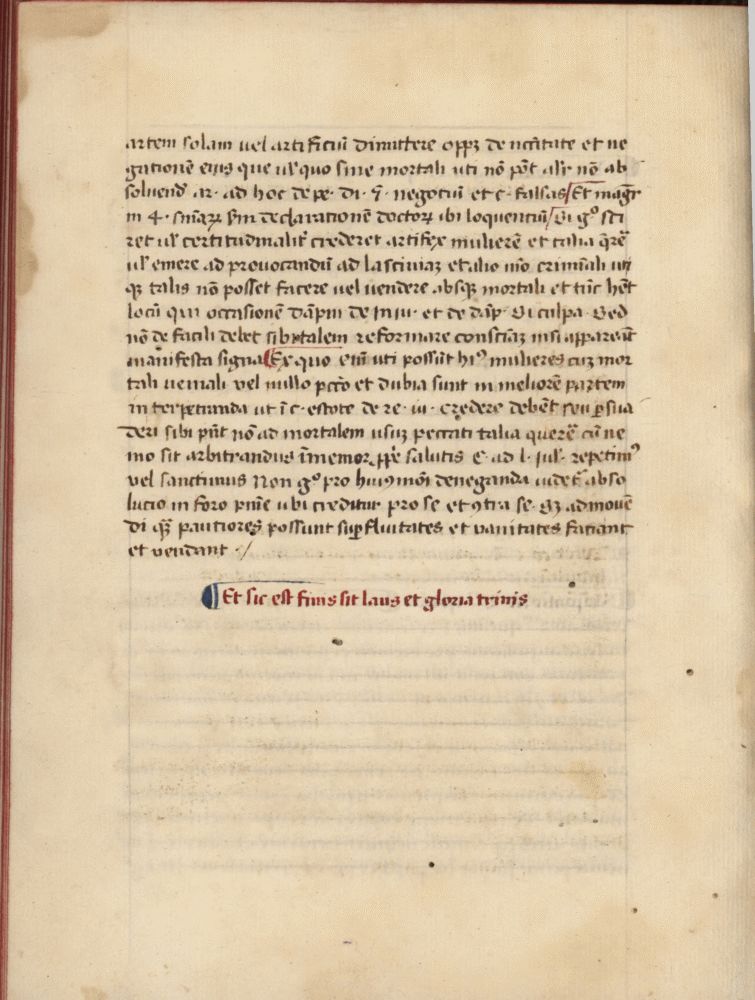 artem solam uel artificiũ dimittere oppꝫ de ncc̃itate et ne
gatione eius que uel' quo sine mortali uti nõ põt al'r nõ ab
soluend' ar. ad hoc de pe. di. ⁊̃. negotiũ et c. falsas Et magr̃
in 4. sñiaꝝ sm̃ declarationẽ doctoꝝ ibi loquentiũ Si gͦ sci
ret ul' certitudinalit̃ crederet artifex mulierẽ et talia q̃rẽ
ul' emere ad provocandũ ad lasciuiaz et alio mõ criminali uti
qꝫ talis nõ posset facere uel uendere absqꝫ mortali et tũc hẽt
locũ qui occasionẽ dãpni de iniu. et de dãp. Si culpa. Sed
nõ de facili debet sibi talem reformare consciãz nisi appareãt
manifesta signa Ex quo eni uti possũt hiꝰ mulieres cuz mor
tali ueniali vel nullo pccõ et dubia sunt in meliorẽ partem
interpetranda ut ĩ c. estote de re. iu. Credere debẽt seu ꝑsua
deri sibi pñt nõ ad mortalem usuz peccati talia querẽ cũ ne
mo sit arbitrandus ĩmemor ꝓpẽ salutis c. ad l. iul. repetunͫ
vel sanctimus Non gͦ pro huiꝰmõi deneganda uidet̃ abso
lucio in foro pnĩe ubi creditur pro se et ꝯtra se. Sꝫ admoue
di q̃ pautiores possunt suꝑfluitates et vanitates faciant
et vendant ./
Et sic est finis sit laus et gloria trinis